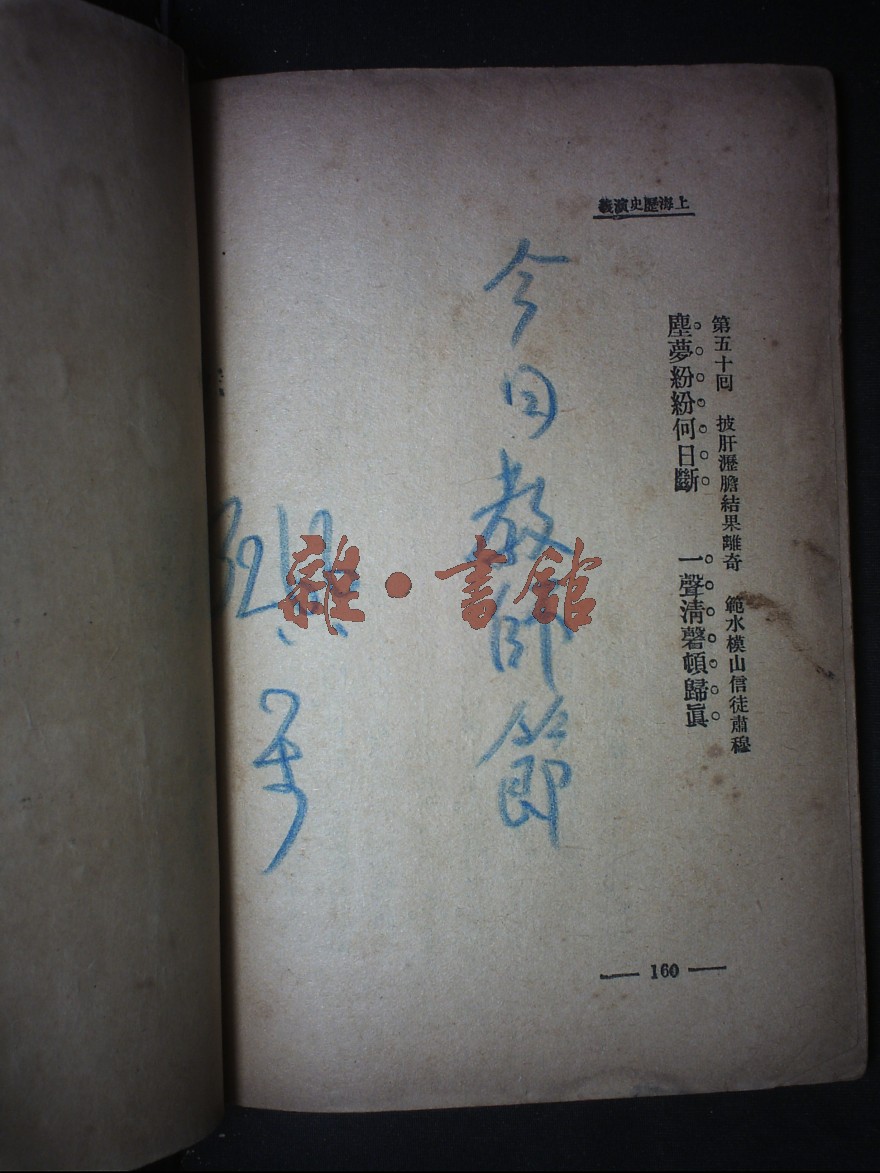 上海歷史演義
第五十回　披肝瀝膽結果離奇　範水模山信徒肅穆
塵夢紛紛何日斷　一聲清磬頓歸眞
今日教師節
雜·書舘
— 160 —